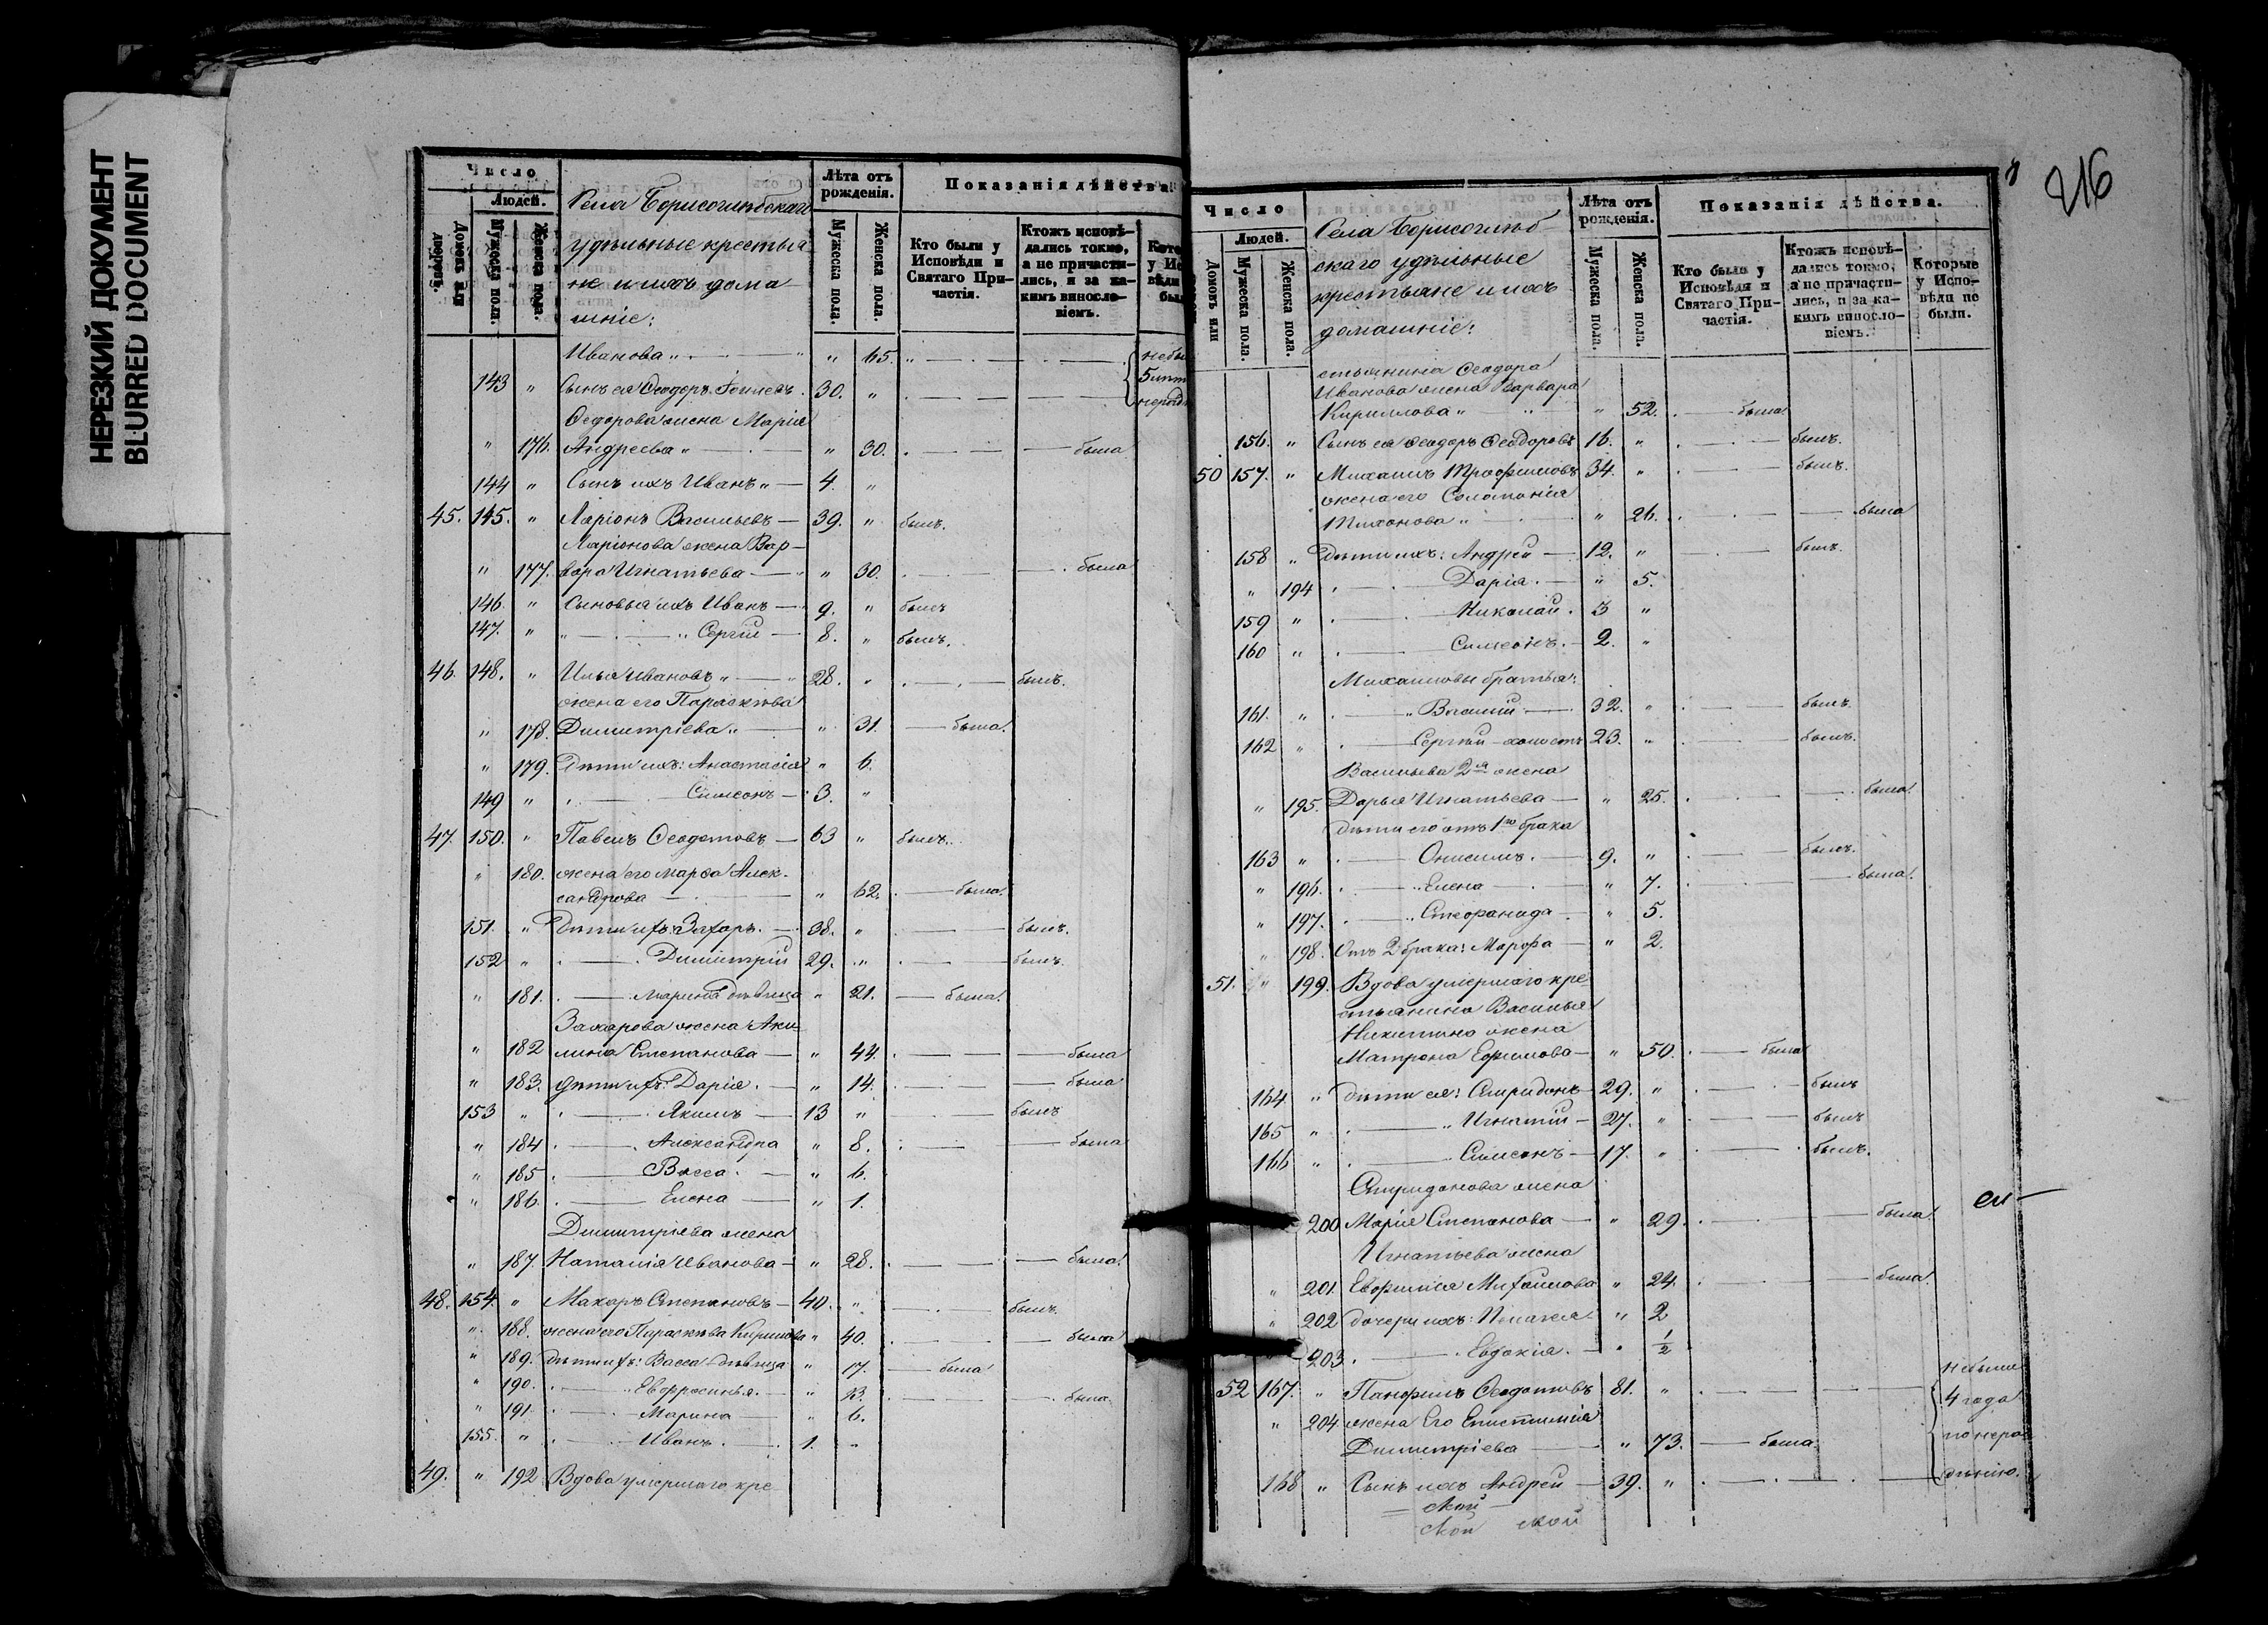 НЕРЕЗКИЙ ДОКУМЕНТ
BLURRED DOCUMENT
Число
Людей.
Домовъ или дворовъ.
Мужеска пола.
Женска пола.
Села Борисоглѣбскаго
удѣльные крестья
не и ихъ дома
шніе:
Лѣта отъ рожденія.
Мужеска пола.
Женска пола.
Показанія дѣйства
Кто были у Исповѣди и Святаго При-частія.
Ктожъ исповѣ-дались токмо, а не причасти-лись, и за ка-кимъ виносло-віемъ.
Иванова " — " 65. "
143 " Сынъ ея Ѳеодоръ 30. "
Ѳедорова жена Марія
" 176. Андреева " — " 30. была
144 " Сынъ ихъ Иванъ " — 4. "
45. 145. " Ларіонъ Васильевъ — 39. " былъ.
Ларіонова жена Вар-
" 177. вара Игнатьева — " 30. была
146. " Сыновья ихъ Иванъ — 9. " былъ
147. " " — " Сергій — 8. " былъ.
46. 148. " Илья Ивановъ " — 28. " былъ.
жена его Параскѣва
" 178. Димитріева " — " 31. была.
" 179. Дѣти ихъ: Анастасія " 6.
149 " — Симеонъ — 3. "
47. 150. " Павелъ Ѳеодотовъ — 63 " былъ.
" 180. жена его Марѳа Алек-
сандрова — " 62. была.
151. " Дѣти их: Захаръ. — 38. " былъ.
152 " — Димитрій 29. " былъ.
" 181. — Марина дѣвица " 21. была.
Захарова жена Аки
" 182 лина Степанова — " 44. была
" 183. дѣти их: Дарія. — " 14. была
153 " — Якимъ — 13 " былъ
" 184 — Александра " 8. была
" 185 — Васса. — " 6.
" 186. — Елена — " 1.
Димитріева жена
" 187. Наталія Иванова — " 28. была.
48. 154. " Макаръ Степановъ — 40. " былъ.
" 188. жена его Параскѣва Кирилова " 40. была
" 189. дѣти их: Васса дѣвица " 17. была
" 190. — Евфросинья. — " была.
" 191 — Марина — " 6.
155. " — Иванъ. — 1. "
49. " 192 Вдова умершаго кре
216
Число
Людей.
Домовъ или
Мужеска пола.
Женска пола.
Села Борисоглѣб
скаго удѣльные
крестьяне и ихъ
домашніе:
Лѣта отъ рожденія.
Мужеска пола.
Женска пола.
Показанія дѣйства.
Кто были у Исповѣди и Святаго При-частія.
Ктожъ исповѣ-дались токмо, а не причасти-лись, и за ка-кимъ виносло-віемъ.
Которые у Испо-вѣди не были.
стьянина Ѳеодора
Иванова жена Варвара
Кириллова " — " 52. была
156. " Сынъ ея Ѳеодоръ Ѳеодоровъ 16. " былъ.
50 157. " Михаилъ Трофимовъ 34. " былъ.
жена его Соломонія
Тихонова " — " 26. была
158 " Дѣти ихъ: Андрей — 12. " былъ.
" 194 — Дарія. — " 5.
159 " — Николай. 3 "
160 " — Симеонъ. — 2. "
Михаиловы братья:
161. " — " Василій — 32. " былъ.
162 " — Сергій холостъ 23. " былъ.
Васильева 2я жена
" 195. Дарья Игнатьева — " 25. была.
дѣти его отъ 1го брака
163 " — Онисимъ. — 9. " былъ.
" 196. — " Елена — " 7. была.
" 197. — " Стефанида — " 5.
" 198. Отъ 2 брака: Марфа — " 2.
51. " 199. Вдова умершаго кре
стьянина Василья
Никитина жена
Матрона Ефимова — " 50. была
164 " Дѣти ея: Спиридонъ — 29. " былъ
165 " — " Игнатій — 27. " былъ
166 " — Симеонъ — 17. " былъ.
Спиридонова жена
200 Марія Степанова — " 29. была.
Игнатьева жена
" 201 Евфимія Михаилова " 24. была.
" 202 дочери ихъ: Пелагея " 2
203. — Евдокія. — " 1/2
52 167. " Панфилъ Ѳеодотовъ 81. " не были
4 года
" 204 жена Его Епистимія
по нера
Димитріева — " 73. — была.
дѣнію.
168 " Сынъ ихъ Андрей — 39. "